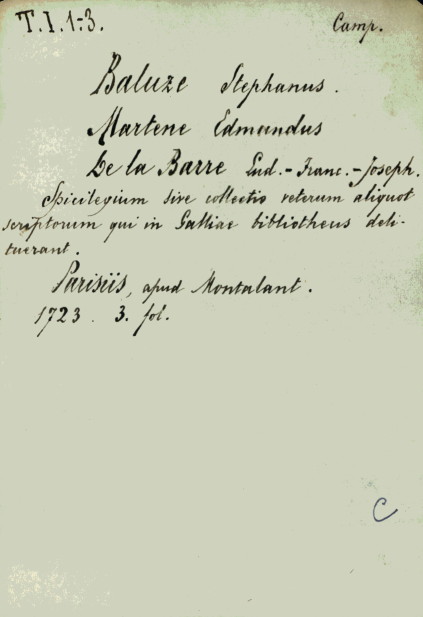 T.I.1-3. Camp.
Baluze Stephanus.
Martene Edmundus
De la Barre Lud.-Franc.-Joseph.
Spicilegium sive collectio veterum aliquot
scriptorum qui in Galliae bibliothecis deli-
tuerant.
Parisiis, apud Montalant.
1723. 3. fol.
C